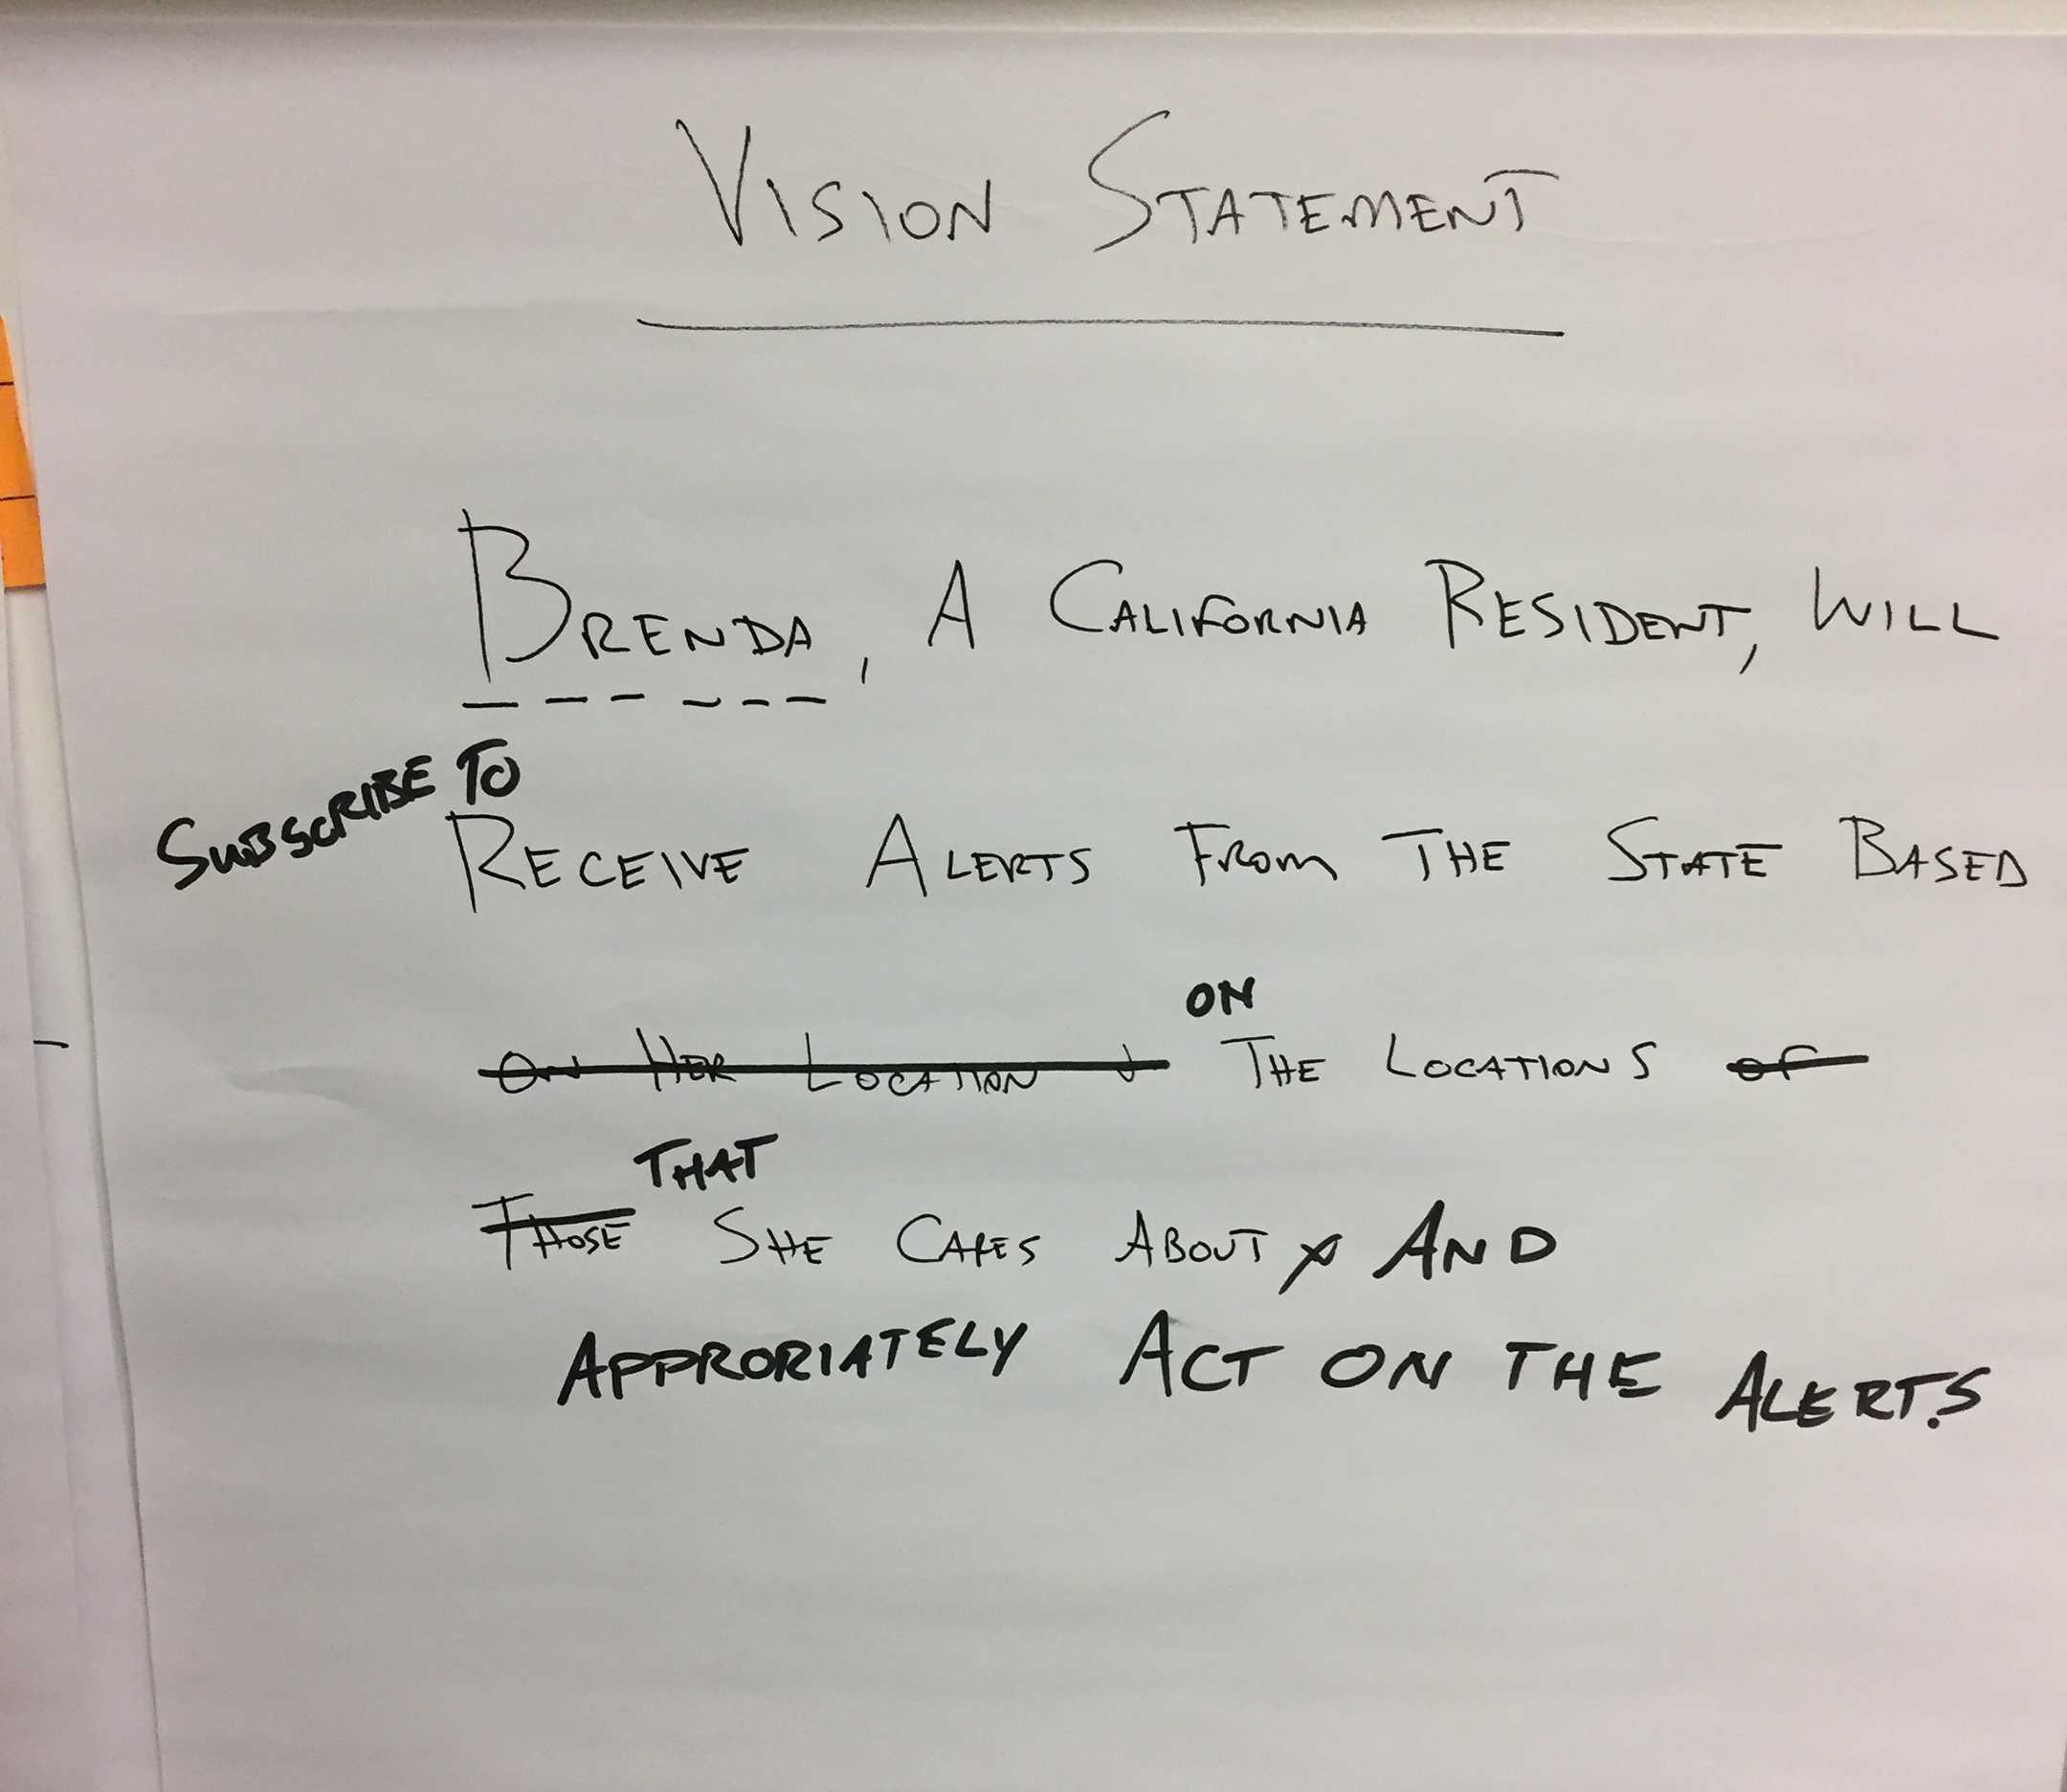 VISION STATEMENT
BRENDA, A CALIFORNIA RESIDENT, WILL
SUBSCRIBE TO
RECEIVE ALERTS FROM THE STATE BASED
ON
ON HER LOCATION THE LOCATIONS OF
THAT
THOSE SHE CARES ABOUT AND
APPRORIATELY ACT ON THE ALERTS